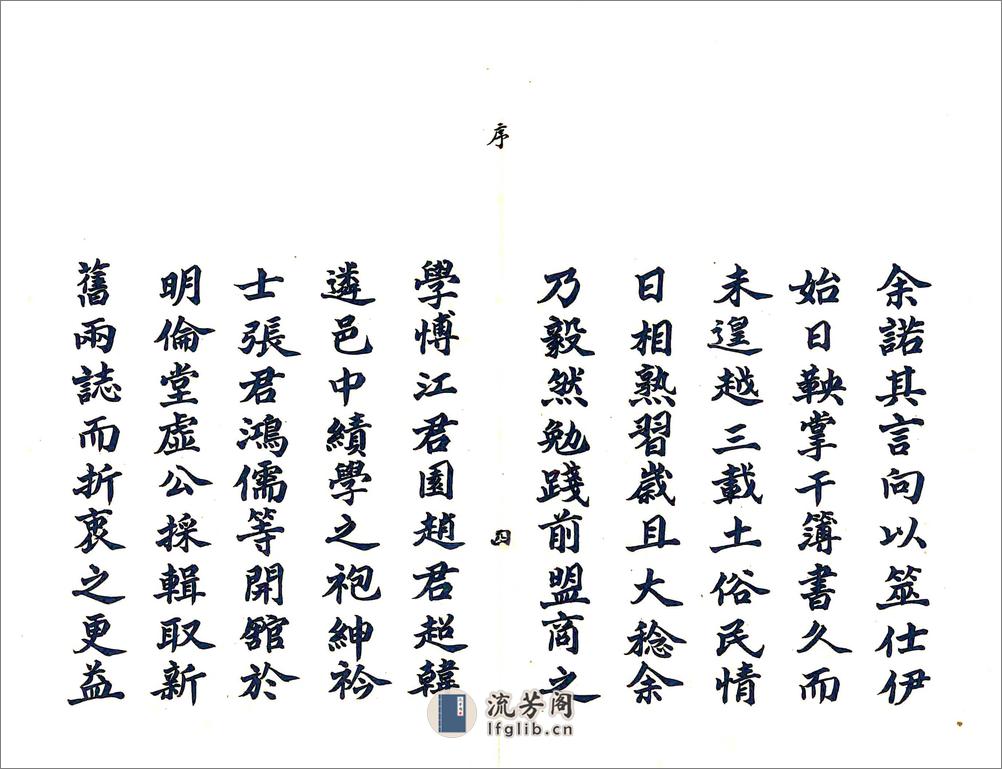 余諾其言向以筮仕伊
始日鞅掌于簿書久而
未遑越三載土俗民情
日相熟習歲且大稔余
乃毅然勉踐前盟商之
序
四
學博江君園趙君超韓
遴邑中績學之袍紳衿
士張君鴻儒等開舘於
明倫堂虛公採輯取新
舊兩誌而折衷之更益
流芳阁
lfglib.cn